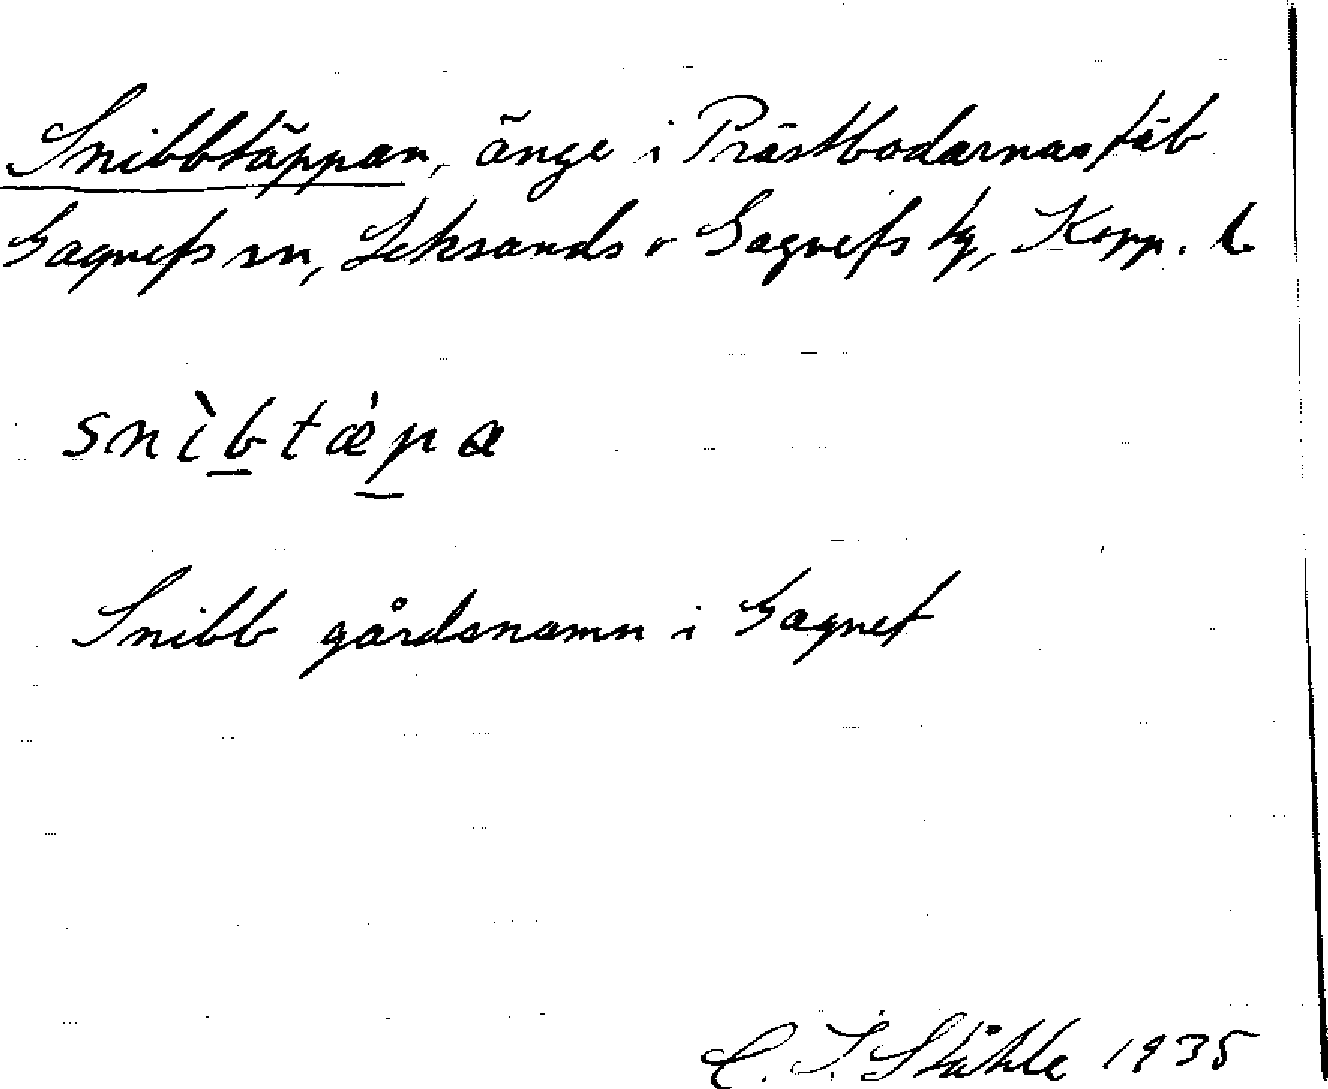 Snibbtäppan, änge i Prästbodarnas fäb
Gagnefs sn, Leksands o Gagnefs tg, Kopp. l.
snìbtǽpa
Snibb gårdsnamn i Gagnef
C. I. Ståhle 1935